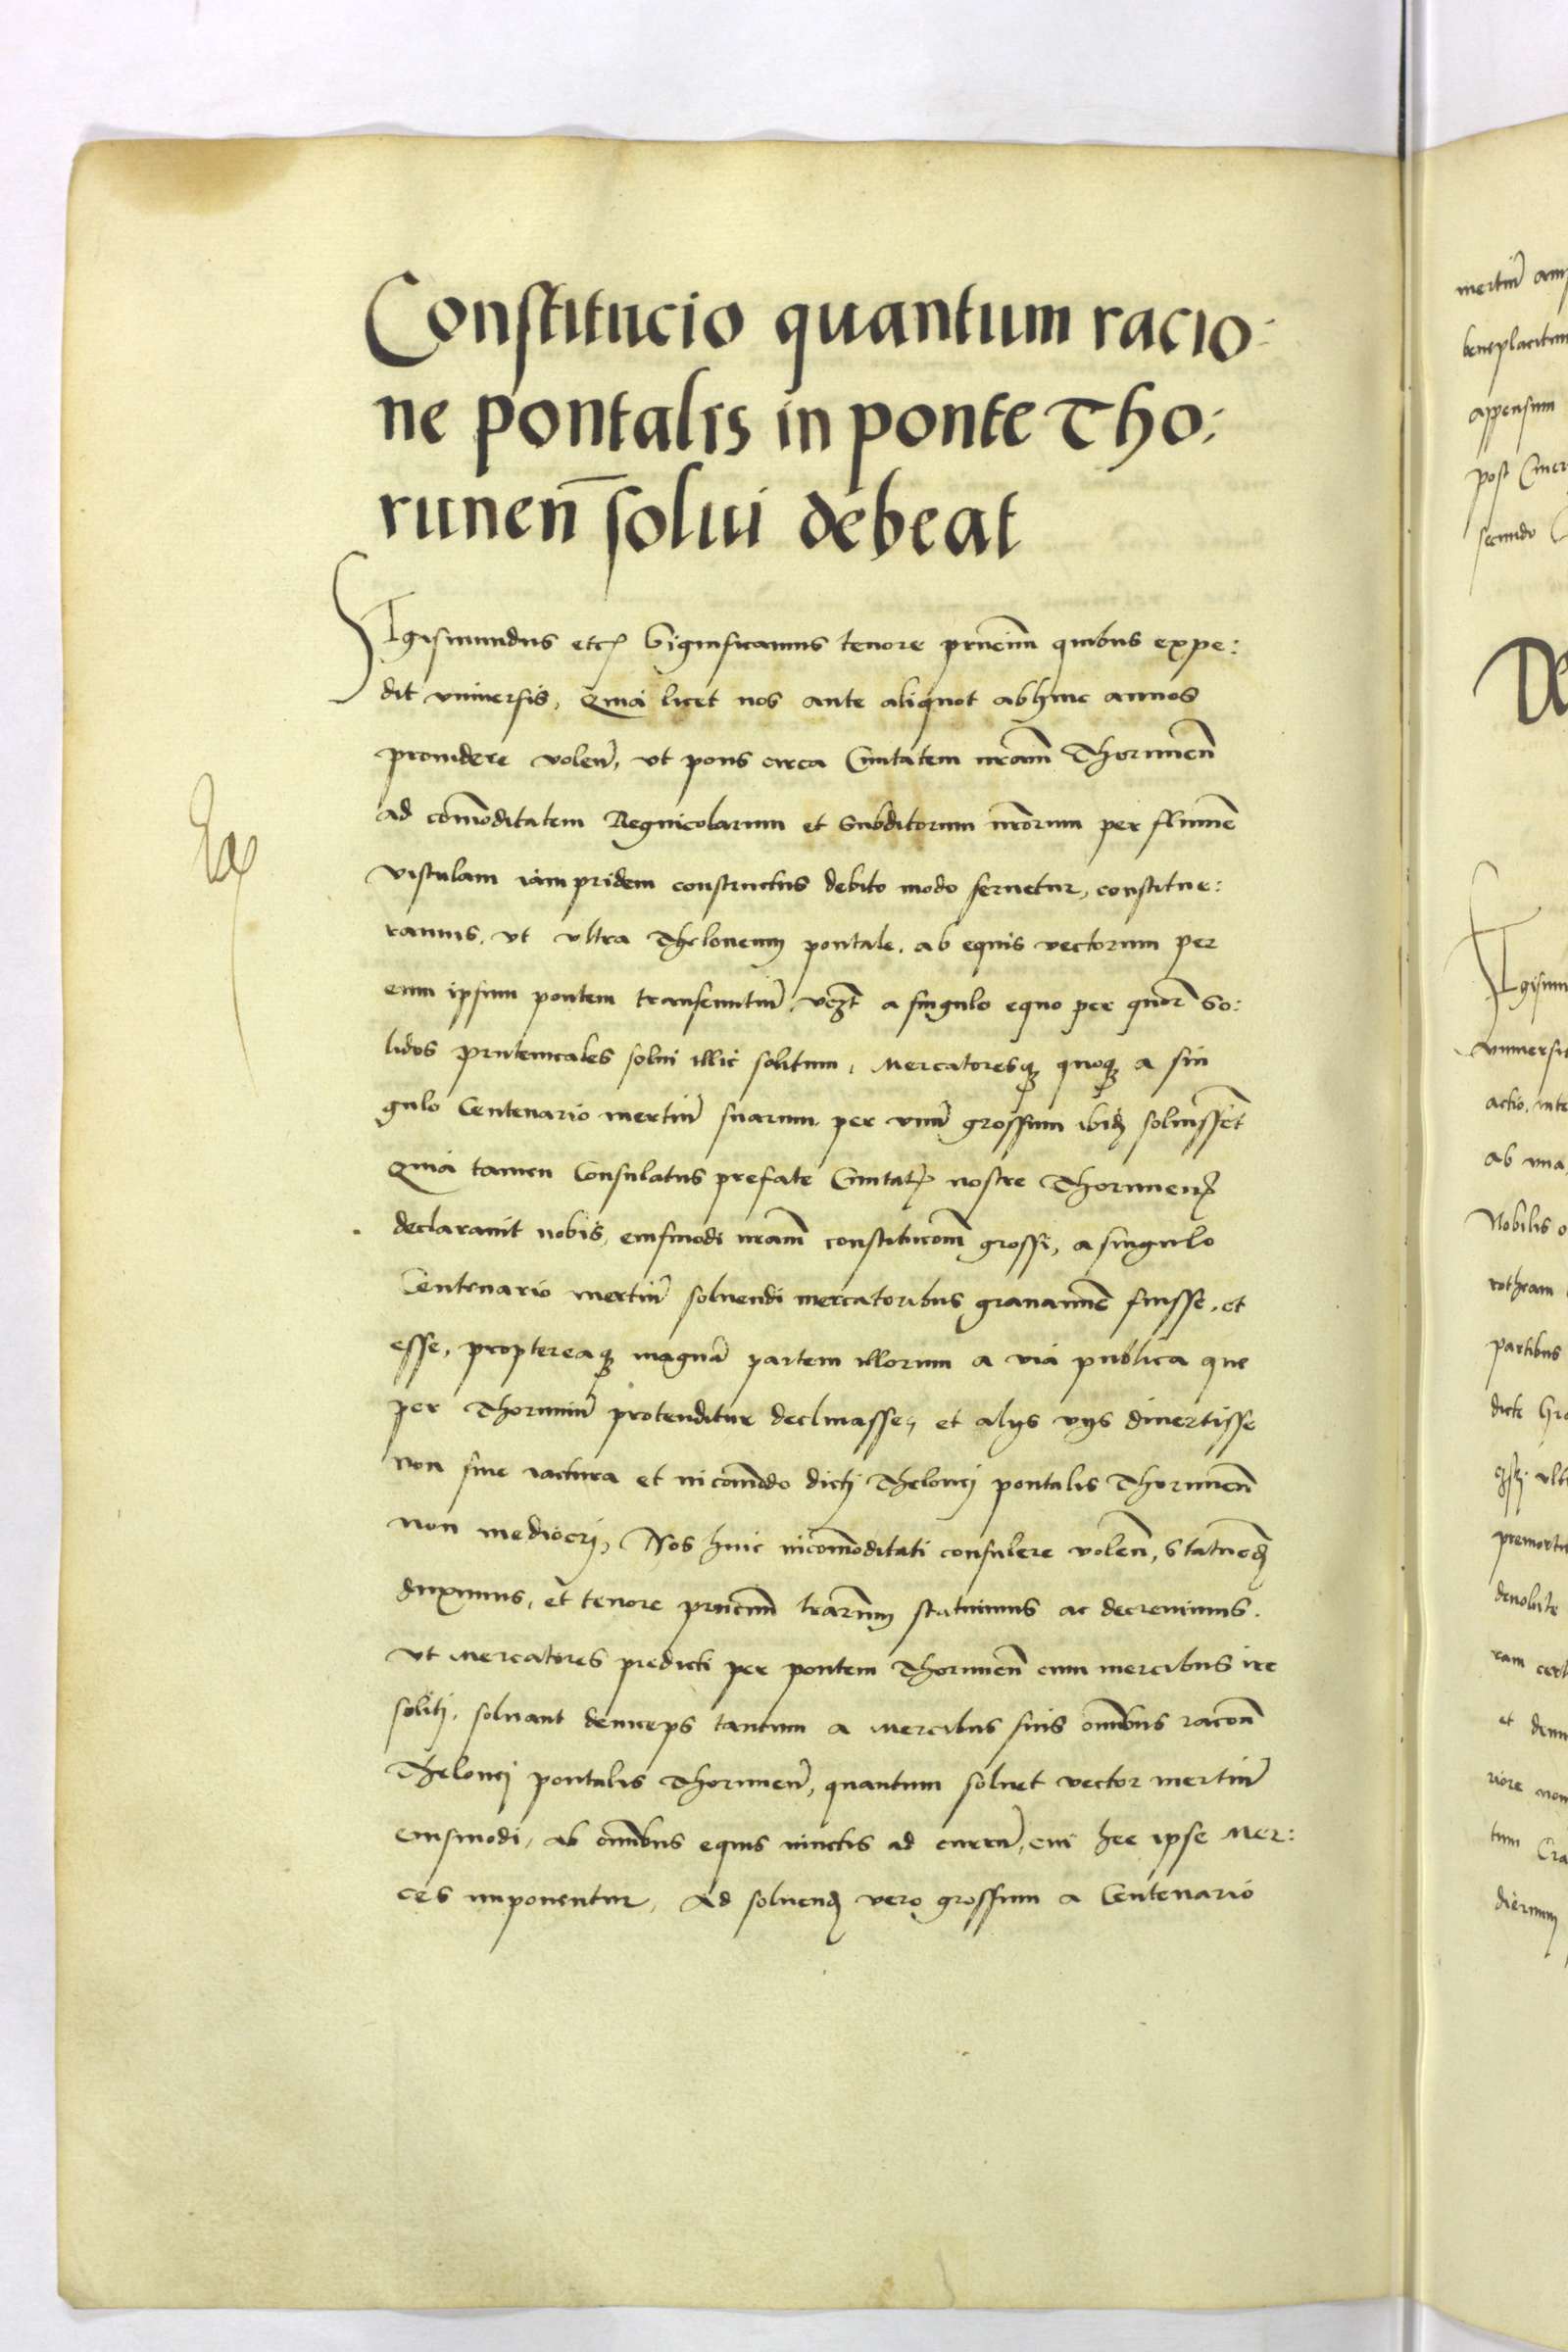 Constitucio quantum racio:
ne pontalis in ponte Tho:
runen̄ solui debeat
Sigismundus etc̄ Significamus tenore pn̄cium quibus expe:
dit vniuersis, Quia licet nos ante aliquot abhinc annos
prouidere volen̄, vt pons circa Ciuitatem nr̄am Thorunen̄
ad com̄oditatem Regnicolarum et Subditorum nr̄orum per flumē
vistulam iampridem constructus debito modo seruetur, constitue:
ramus, vt vltra Theloneum pontale, ab equis vectorum per
eum ipsum pontem transeuntiū, vcꝫt a singulo equo per quor̄ So:
lidos prutenicales solui illic solitum, Mercatoresqꝫ quoqꝫ a sin
gulo Centenario mertiū suarum per vnū grossum ibid̄ soluissēt
Quia tamen Consulatus prefate Ciuitat̄ nostre Thorunen̄
declarauit nobis, eiusmodi nr̄am constitucom̄ grossi, a singulo
Centenario mertiū soluendi mercatoribus grauamē fuisse, et
esse, proptereaqꝫ magnā partem illorum a via publica que
per Thoruniū protenditur declinasse, et alijs vijs diuertisse
non sine iactura et incom̄odo dictj Thelonej pontalis Thorunen̄
non mediocrj, Nos huic incom̄oditati consulere volen̄, Statuend̄
duximus, et tenore pn̄cium lr̄arum statuimus ac decreuimus.
vt Mercatores predicti per pontem Thorunen̄ cum mercibus ire
solitj, soluant deinceps tantum a Mercibus suis om̄ibus racon̄
Thelonej pontalis Thorunen̄, quantum soluet vector mertiū
eiusmodi, ab om̄ibus equis iunctis ad currū, cui hee ipse Mer:
ces imponentur, Ad soluend̄ vero grossum a Centenario